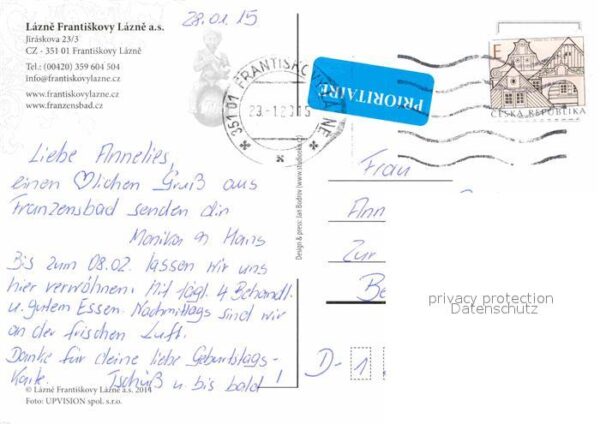 Lázně Františkovy Lázně a.s.
Jiráskova 23/3
CZ - 351 01 Františkovy Lázně
Tel.: (00420) 359 604 504
info@frantiskovylazne.cz
www.frantiskovylazne.cz
www.franzensbad.cz
28.01.15
351 01 FRANTIŠKOVY LÁZNE
PRIORITAIRE
E
ČESKÁ REPUBLIKA
Liebe Annelies,
einen ♡lichen Gruß aus
Franzensbad senden dir
Monika Hans
Bis zum 08.02. lassen wir uns
hier verwöhnen. Mit tägl. 4 Behandl.
u. gutem Essen. Nachmittags sind wir
an der frischen Luft.
Danke für deine liebe Geburtstags-
karte. Tschüß u. bis bald!
© Lázně Františkovy Lázně a.s. 2014
Foto: UPVISION spol. s.r.o.
Design & press: Jan Bodrov (www.studiooko.cz)
Frau
Ann
Zur
Be
D-1
privacy protection
Datenschutz